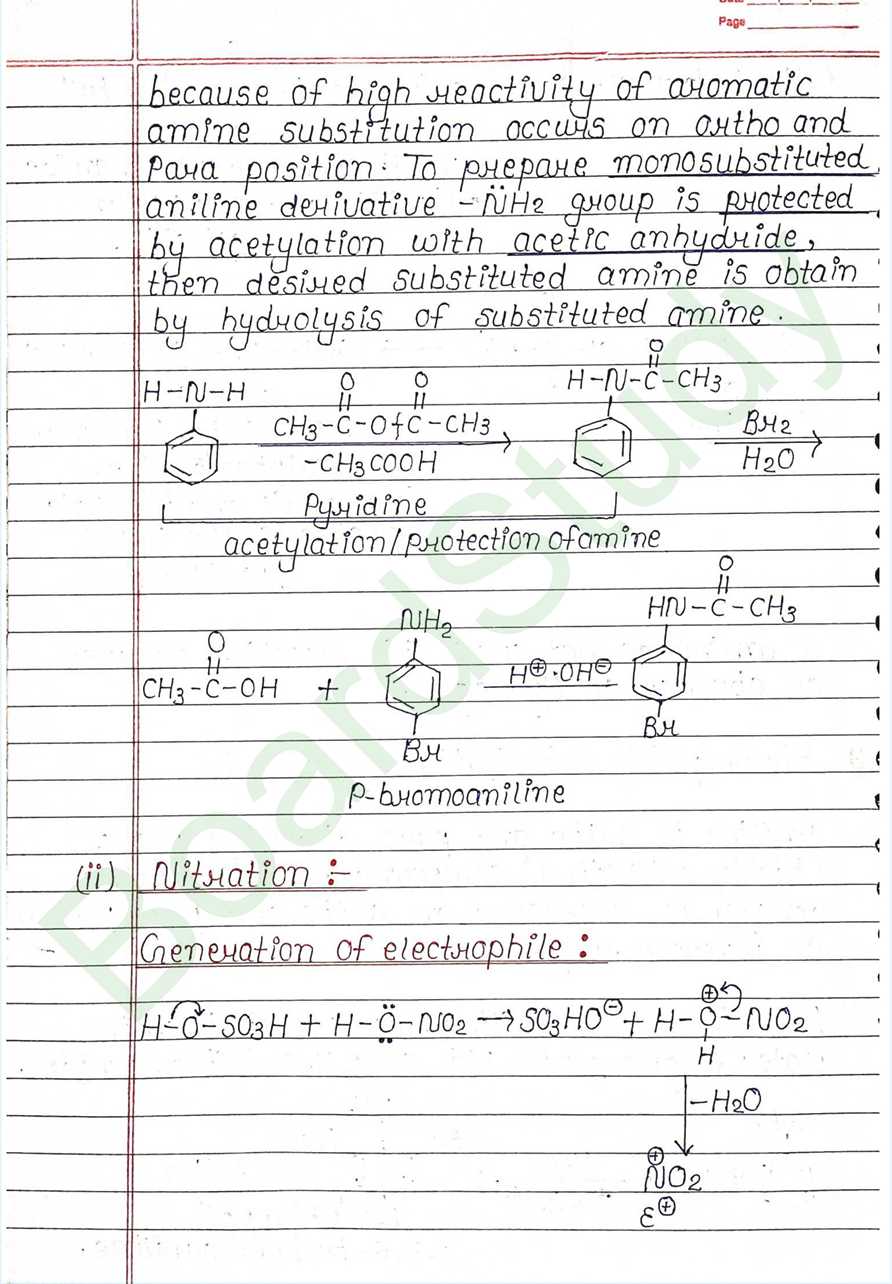 Date
Page
because of high reactivity of aromatic
amine substitution occurs on ortho and
Para position. To prepare monosubstituted
aniline derivative -N̈H2 group is protected
by acetylation with acetic anhydride,
then desired substituted amine is obtain
by hydrolysis of substituted amine.
H-N-H
O O
CH3-C-O-C-CH3
-CH3COOH
Pyridine
acetylation/protection of amine
O
H-N-C-CH3
Br2
H2O
O
HN-C-CH3
Br
H⊕.OH⊖
NH2
Br
P-bromoaniline
+
O
CH3-C-OH
(ii) Nitration :-
Generation of electrophile :
H-O-SO3H + H-Ö-NO2 → SO3HO⊖ + H-O-NO2
⊕
H
-H2O
⊕
NO2
ε⊕
BoardStudy